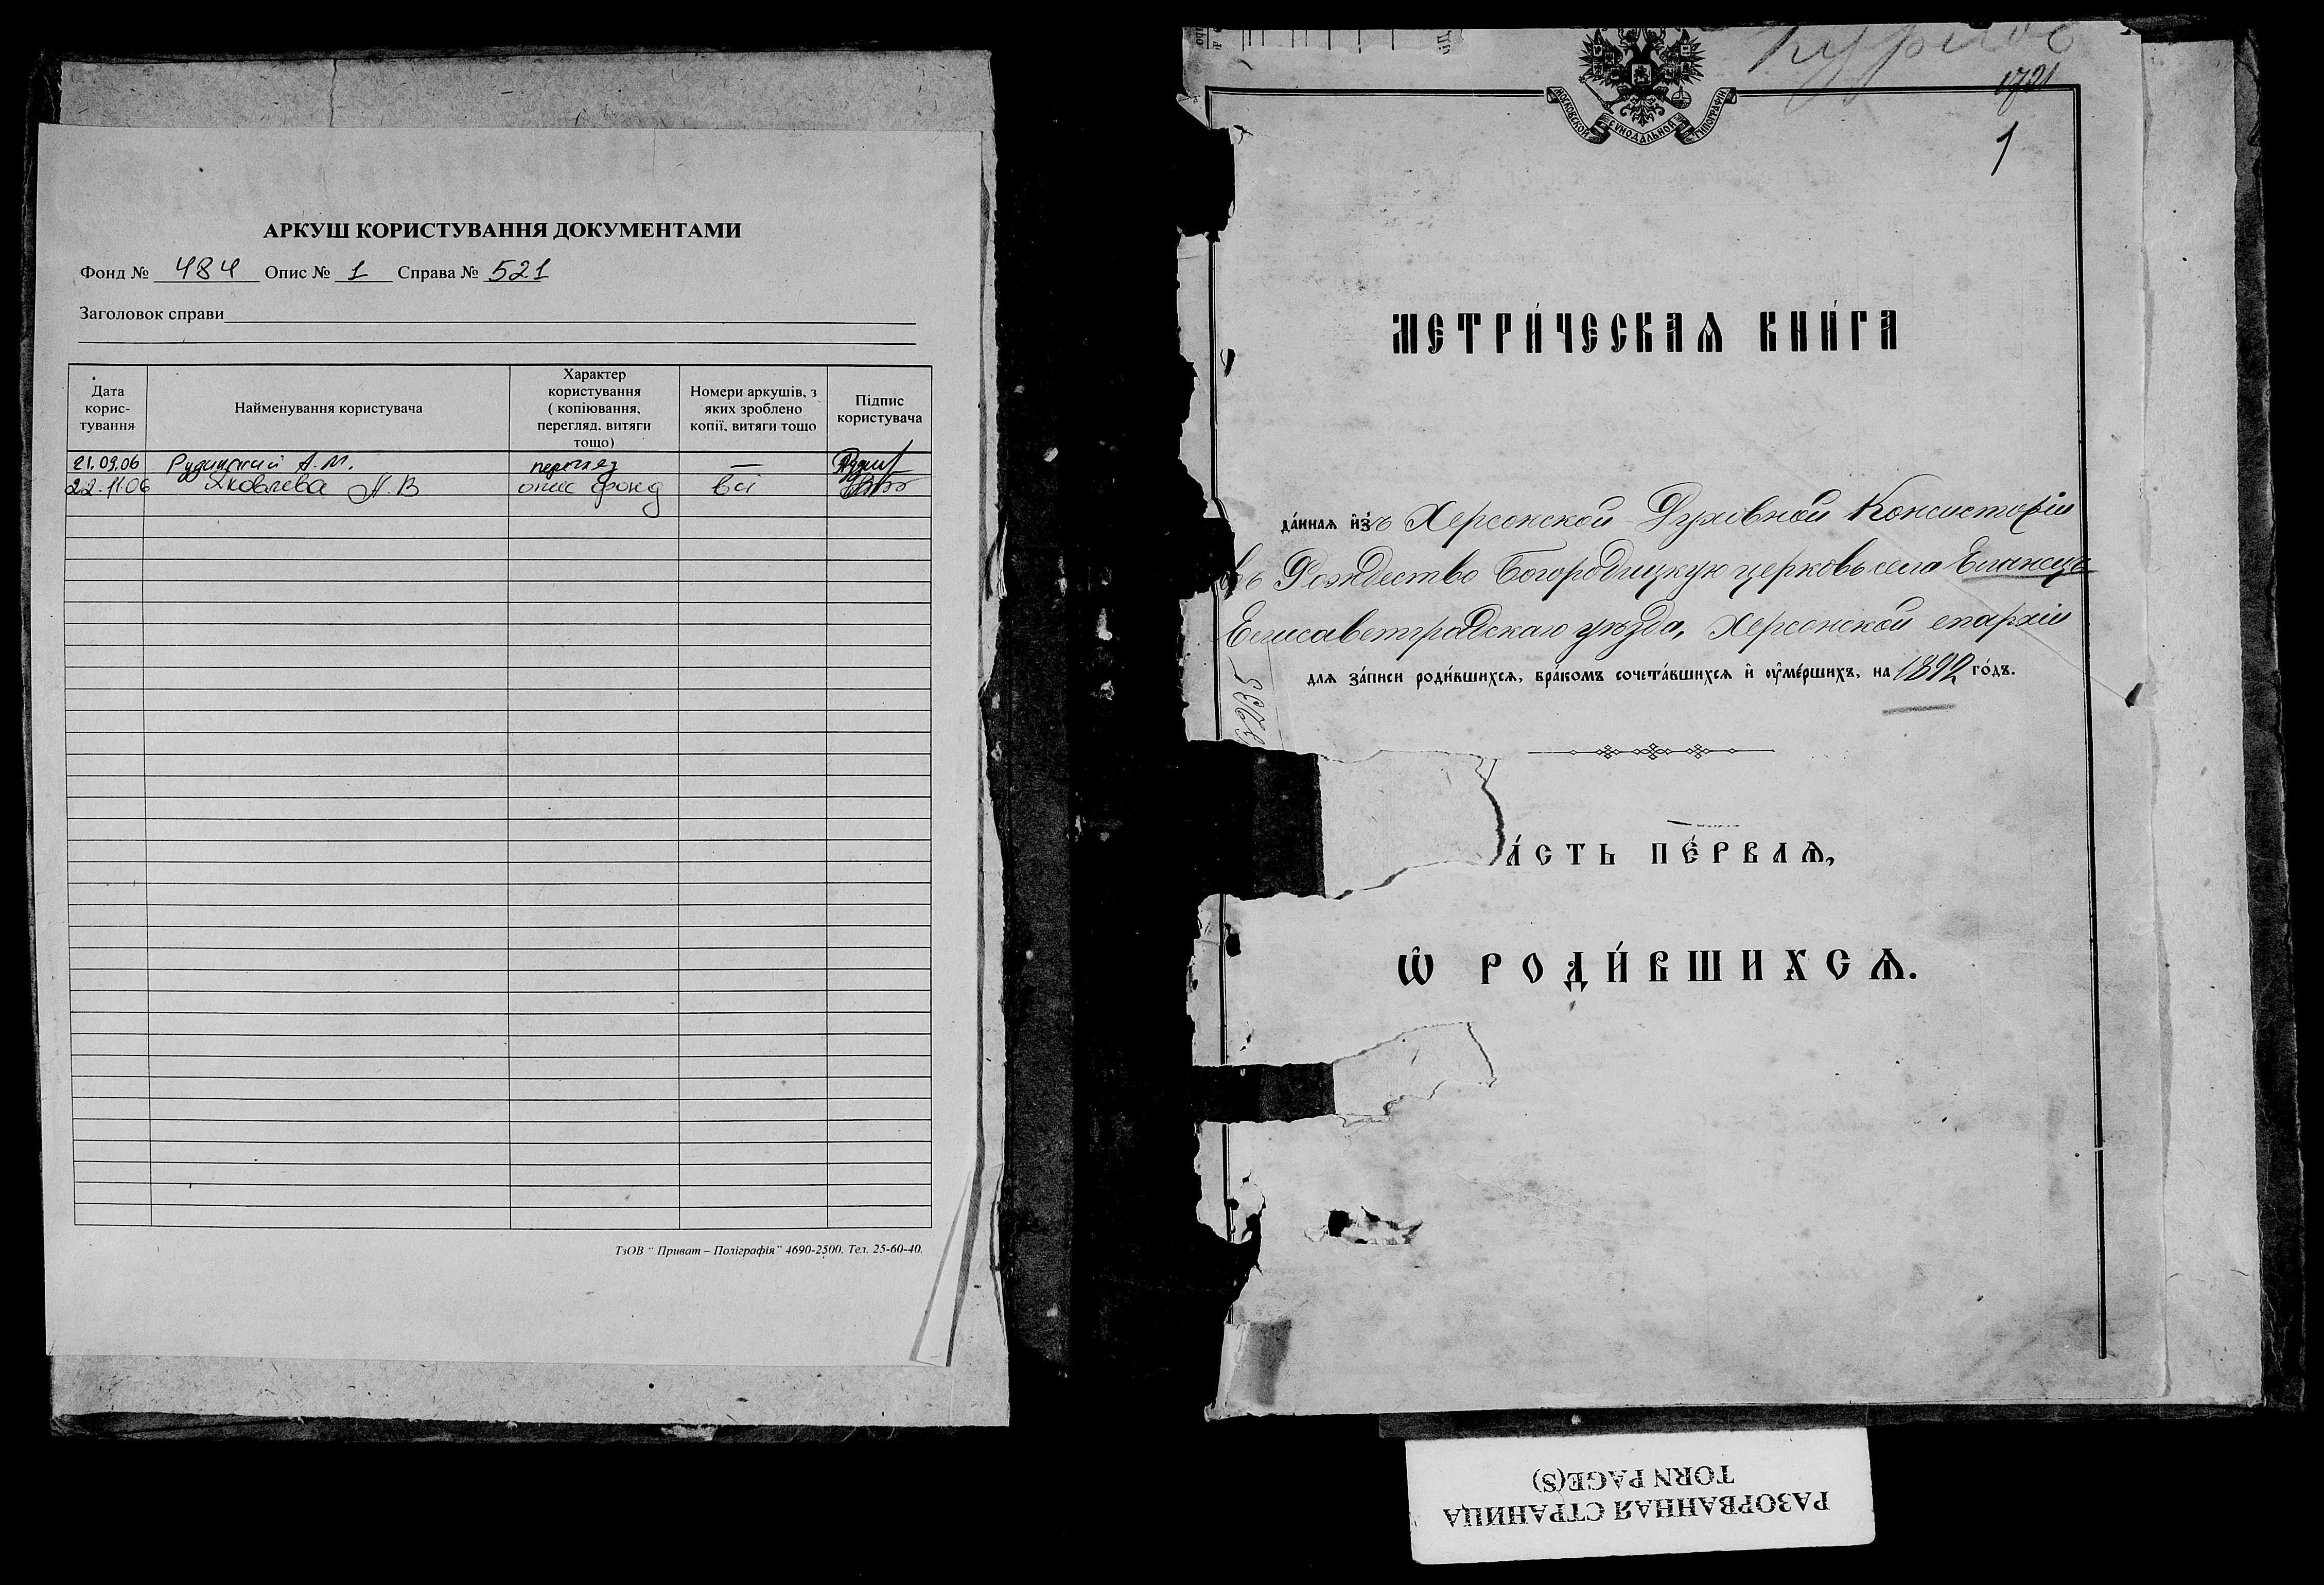 АРКУШ КОРИСТУВАННЯ ДОКУМЕНТАМИ
Фонд № 484 Опис № 1 Справа № 521
Заголовок справи
Дата корис-тування
Найменування користувача
Характер користування ( копіювання, перегляд, витяги тощо)
Номери аркушів, з яких зроблено копії, витяги тощо
Підпис користувача
21.09.06 А.М. перегляд —
22.11.06 Яковлева Н.В опис фонд всі
ТзОВ " Приват – Поліграфія" 4690-2500. Тел. 25-60-40.
1721
МОСКОВСКОЙ СѴНОДАЛЬНОЙ ТИПОГРАФІИ
1
МЕТРИ́ЧЕСКАѦ КНИ́ГА
да́ннаѧ и҆зъ Херсонской Духовной Консисторіи
въ Рождество Богородицкую церковь села Еланецъ
Елисаветградскаго уѣзда, Херсонской епархіи
длѧ за́писи роди́вшихсѧ, бра́комъ сочета́вшихсѧ и҆ ᲂу҆ме́ршихъ, на 1892 го́дъ.
3235
А́СТЬ ПЕ́РВАѦ,
Ѡ҆ РОДИ́ВШИХСѦ.
РАЗОРВАННАЯ СТРАНИЦА
TORN PAGE(S)